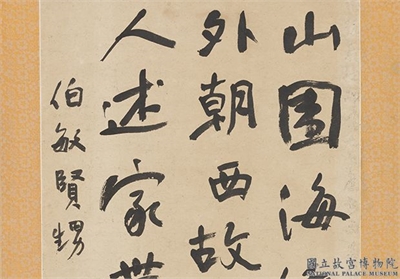 山園海
外朝西故
人述家
伯敏賢甥
國立故宮博物院
NATIONAL PALACE MUSEUM